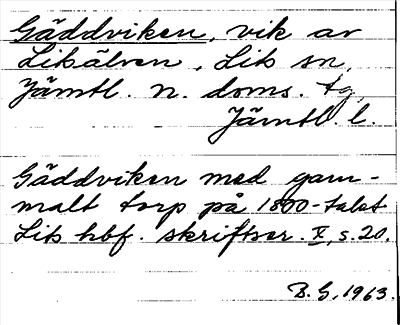 Gäddviken, vik av
Litsälven, Lits sn,
Jämtl. n. doms. tg,
Jämtl. l.
Gäddviken med gam-
malt torp på 1800-talet
Lits hbf. skriftser. X, s. 20.
B. G. 1963.